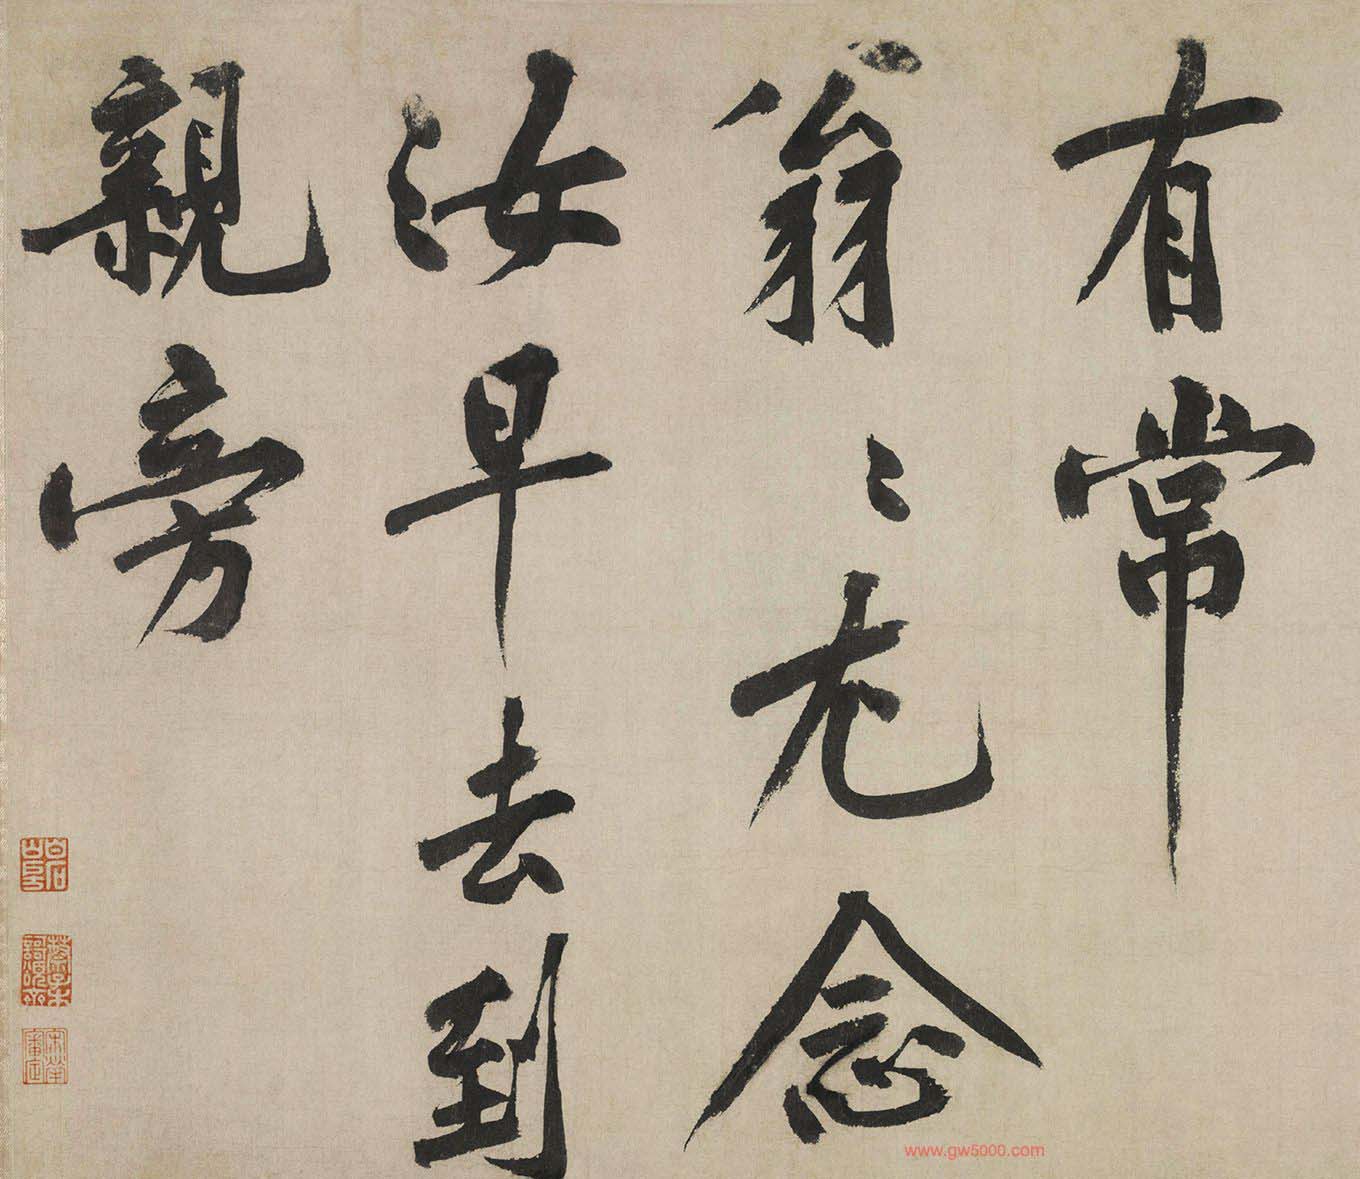 有常
翁〻尤念
汝早去到
親旁
宋犖審定
www.gw5000.com